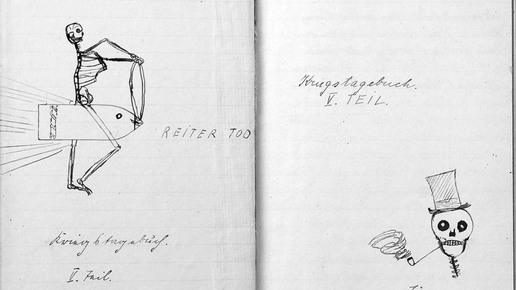 REITER TOD
Kriegstagebuch.
V. Teil.
Kriegstagebuch.
V. TEIL.